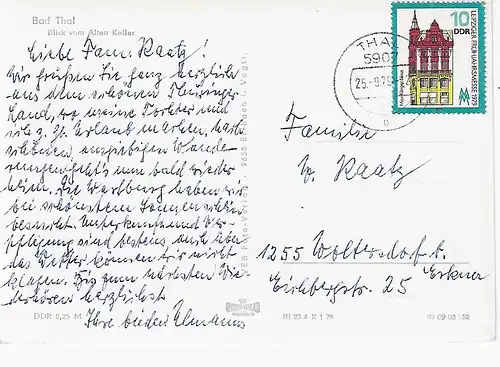 Bad Thal
Blick vom Alten Keller
Liebe Fam. Kaatz!
Wir grüßen Sie ganz herzlich
aus dem schönen Thüringer
Land, wo meine Tochter und
ich z. Zt. Urlaub machen. Nach
schönen, ausgiebigen Wande-
rungen geht's nun bald wieder
heim. Die Wartburg haben wir
bei schönstem Sonnenschein
besucht. Unterkunft und Ver-
pflegung sind bestens, auch über
das Wetter können wir nicht
klagen. Bis zum nächsten Wie
dersehen herzlichst
Ihre beiden Ulmanns
DDR 0,25 M
III 23 4 K 1 79
07 09 03 152
THAL
590
25.-8.79
10
DDR
LEIPZIGER FRÜHJAHRSMESSE 1979
Familie
Kaatz
1255 Woltersdorf b.
Erkner
Eichbergstr. 25